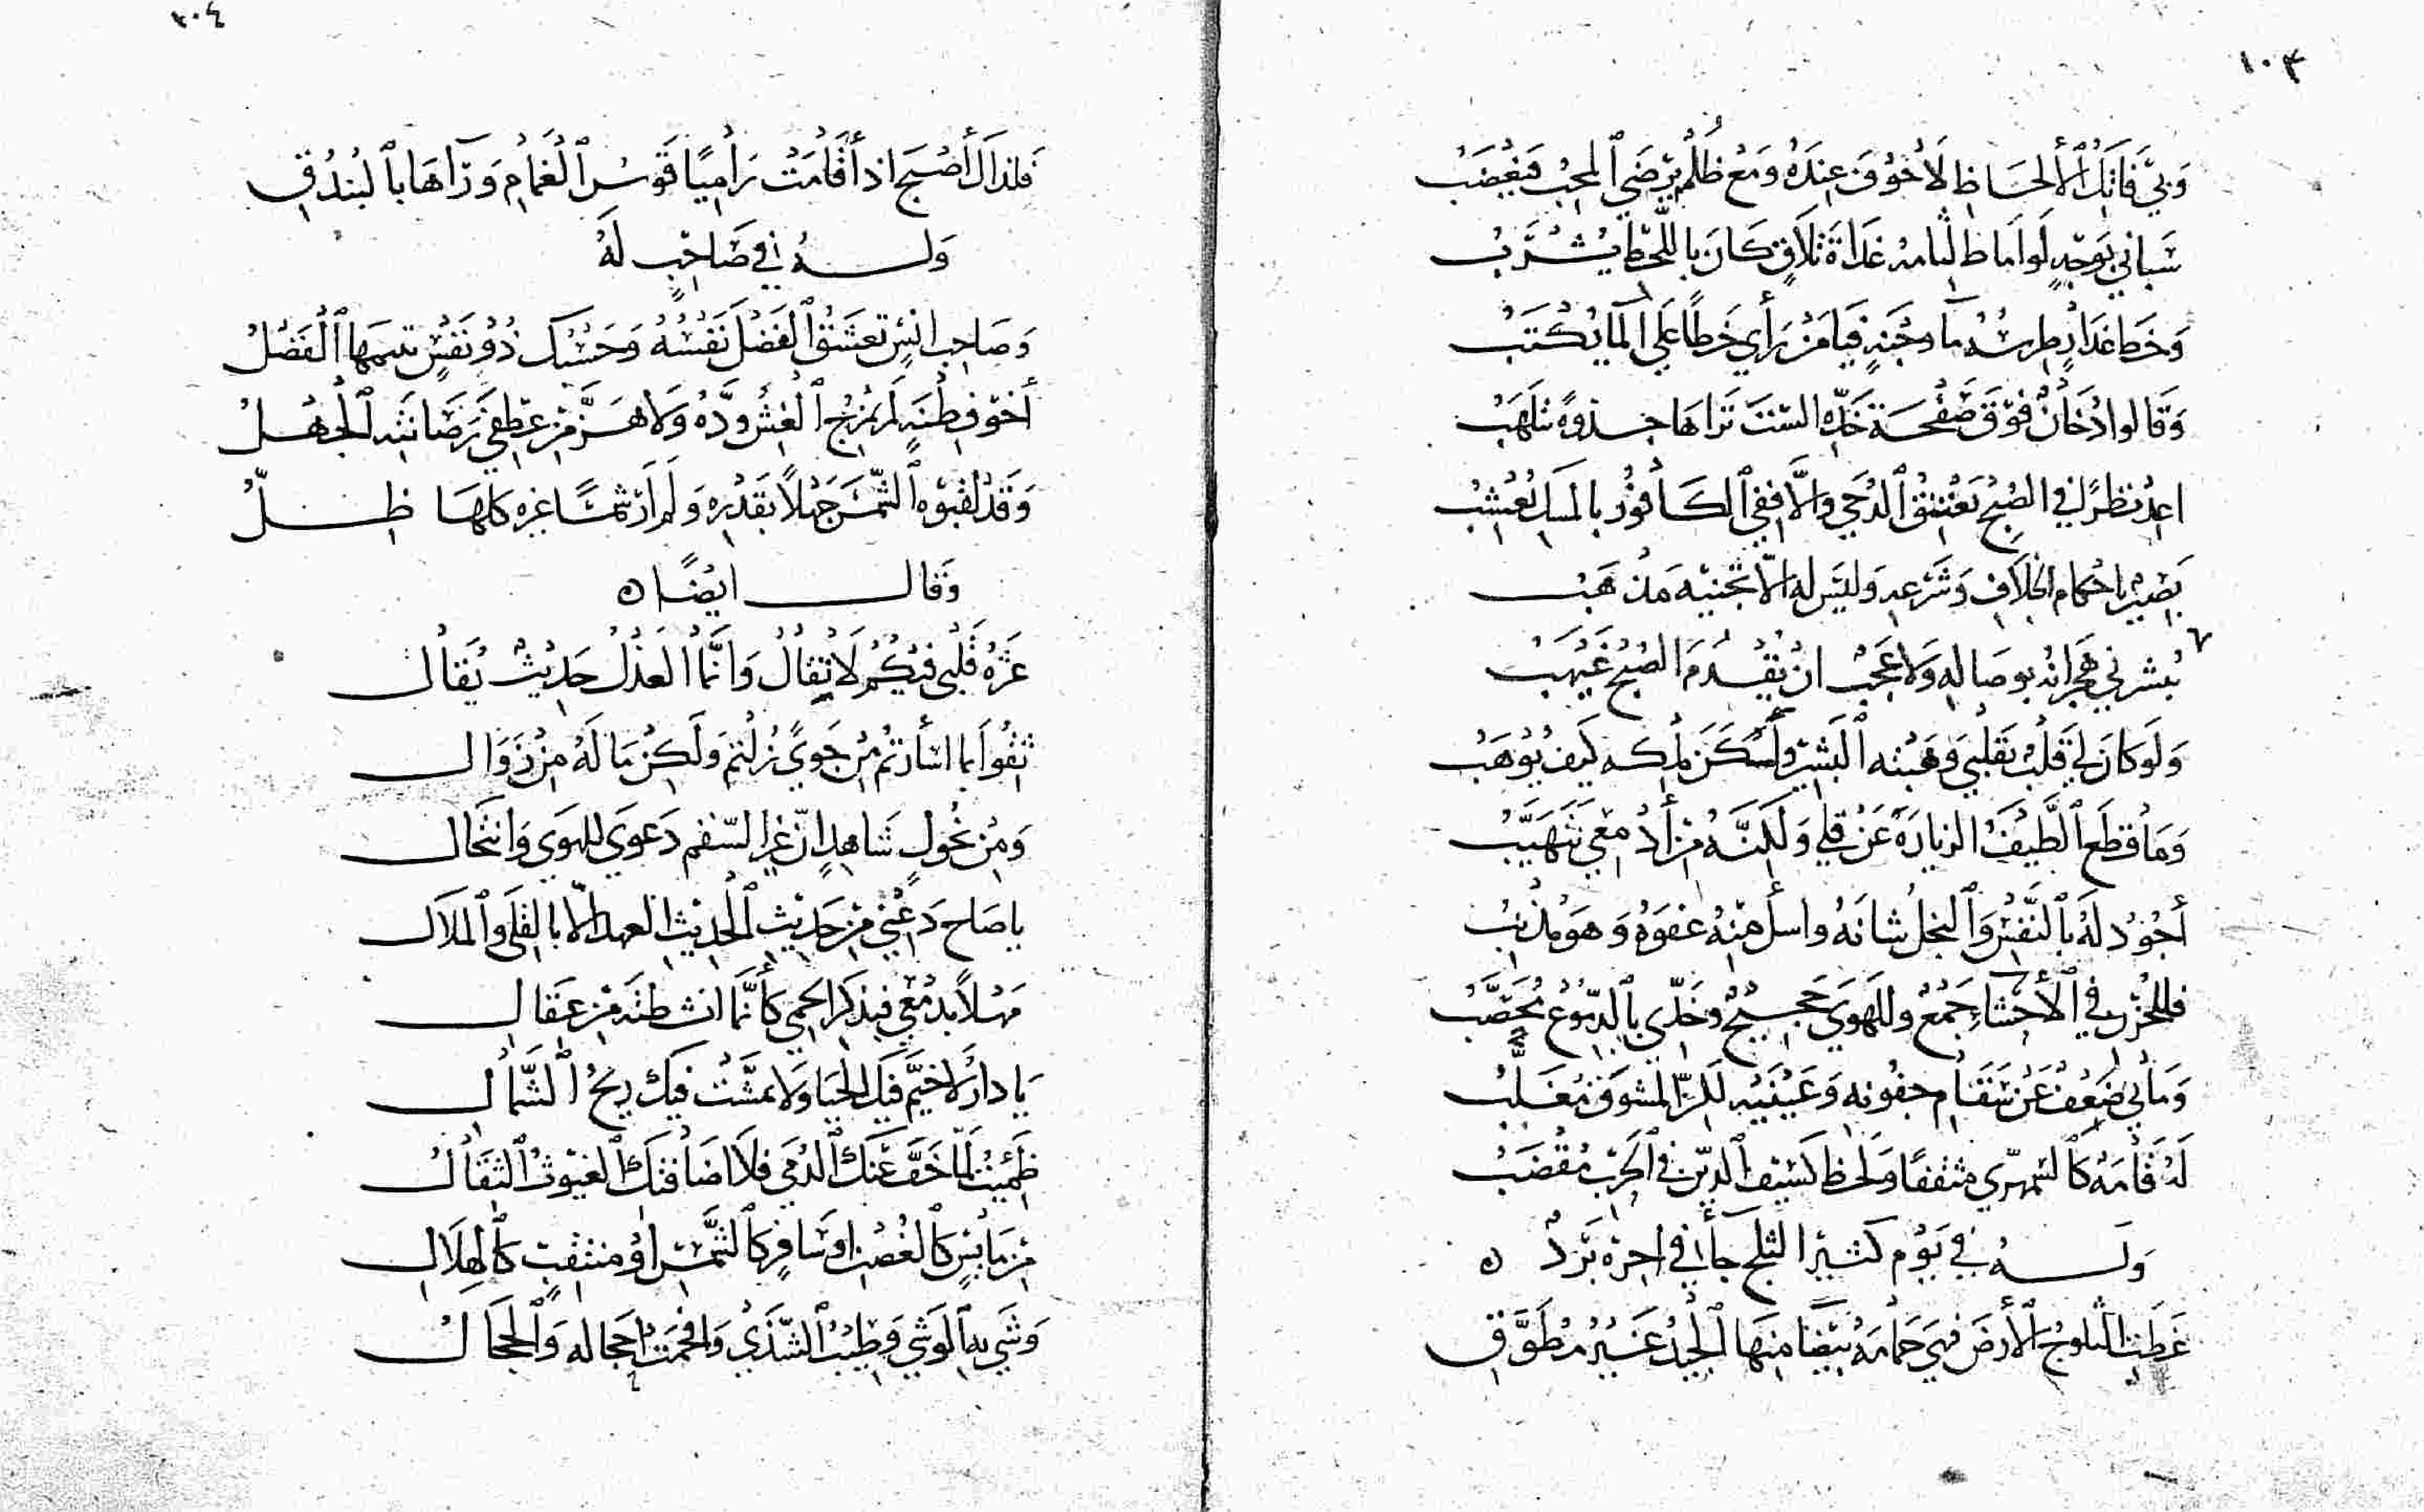 ١٠٣
وَبيَ فَاتِكُ ٱلْأَلحَاظِ لَا خُوِّفَ عِنْدَهُ وَمَعْ ظُلْمٍ يَرْضَى ٱلمحِبُّ فَيَغْضَبُ
سَبَاني بِوَجْهٍ لَو امَاط لثامه غَدَاةَ تَلَاقٍ كَانَ بِاللَّحْظِ يُشْرَبُ
وَخَط عذارٍ طِرسُهُ مآ وجْنَةٍ فيَا مَنْ رَأي خَطًا عَلَى ٱلمآ يُكْتَبُ
وَقَالوا دُخَانٌ فَوْقَ صَفْحَةِ خَدِّهِ الستَ تَرَاهَا جذوةً تَتَلَهَّبُ
اعِدْ نظرًا في الصُبْحِ يَعْتَنِقُ ٱلدُجَي وَالَّا فَفي ٱلكَافُورِ بالمسكِ يُعْشِبُ
بَصِيرٌ باحكام الخِلَافِ وَشَرْعِهِ وَليسَ له الّا تجَنِّيْهِ مَذْهَبُ
يُبشرني هجرَانُه بوصَالهِ وَلا عَجَبٌ انْ يَقْدُمَ الصُبْحَ غَيْهَبُ
وَلَو كانَ لي قَلْبٌ بقَلبي وَهَبْتُه ٱلبَشِيرَ وَلَكِنْ مُلْكه كَيف يُوْهَبُ
وَمَا قطَعَ ٱلطَّيْفُ الزيارَةَ عَنْ قِلًي وَلَكِنَّهُ مِنْ أَدْمُعِي يَتَهَيَّبُ
أَجُوْدُ لَهُ بٱلنَّفْسِ وَٱلبخلُ شانَهُ واسأل منهُ عفوَهُ وَهوَ مُذنِبُ
فللحُزْنِ في ٱلأحشَاءِ جَمْعٌ وللهَوَي حَجِيْجٌ وخَدّي بٱلدّمُوْعِ مُحَصَّبُ
وَمَا بي ضَعفٌ عَنْ سَقَامِ جفُونهِ وَعَيْنَيْهِ لَكنّ المشوقَ مُغَلَّبُ
لَهُ قَامَةٌ كٱلسّمهَرِّي مثقفًا وَلحظ كسَيْفِ ٱلدّينِ في ٱلحَرْبِ مِقْضَبُ
وَلَــهُ في يَوْمٍ كثيْرِ الثلج جآ في اخِرِهِ بَرَدٌ ه
غَطَّتِ الثلوجُ ٱلأرضَ فهيَ حَمامَةٌ بَيْضَا منهَا ٱلجيدُ غَيْرُ مطَوَّقِ
٣٠٤
فلذاكَ أَصْبَحَ اذ أَقَامَتْ رَامِيًا قَوسُ ٱلغَمَامِ وَرَآهَا بٱلبُندُقِ
وَلَــهُ في صَاحِبٍ لَهُ
وَصَاحبِ انسٍ تعَشَقُ ٱلْفَضْلَ نَفسُهُ وَحَسْبُكَ ذُوْ نَفْسٍ تتيّمهَا ٱلْفَضْلُ
أَخوْ فِطْنَةٍ لَمْ يَمْزِجِ ٱلْغِشُّ وِدَّهُ وَلَا هَزَّ مِنْ عِطفَيْ رَصَانَتِهِ ٱلجهلُ
وَقَدْ لقبّوهُ ٱلشّمسَ جَهلاً بقَدْرِهِ وَلَمْ أَرَ شمسًا غيره كلهَا ظِلُّ
وَقالَ ايْضًا ه
عَثْرَةُ قَلْبي فيكُمْ لَا تُقَالُ وَانَّمَا ٱلعَذْلُ حَدِيْثٌ يُقَالُ
ثِقُوْا بما اسْأرتُمُ مِنْ جَويً زُلْتُمْ وَلَكِنْ مَا لَهُ مِنْ زَوَالْ
وَمِنْ نحُولٍ شاهِدٍ انّ غَير السّقم دَعوَي للهَوَي وَانتحَالْ
يا صَاح دَعْني مِنْ حَدِيْثِ ٱلحَدِيْثِ العهد الّا بالقِلَى وَٱلملَالْ
مَهْلاً بدَمْعي فبذكرِ الحمَي كأنَّمَا انشطتَهُ مِنْ عِقَالْ
يَا دارُ لا خيَّم فيكِ الحَيَا وَلَا تمشَّتْ فيكِ رِيْحُ ٱلشَّمَالْ
ظَمِئتُ لمّا خَفّ عَنكِ ٱلدُمَي فلَا اضَافتكِ ٱلغيُوثُ ٱلثقَالْ
مِن مَايِسٍ كٱلغُصْنِ او سَافِرٍ كٱلشَّمْسِ او منتقِبٍ كٱلهلَالْ
وَشي بهِ ٱلوَشي وَطِيْبُ ٱلشّذَي وَافحمَتْ احجَاله وَٱلحجَالْ